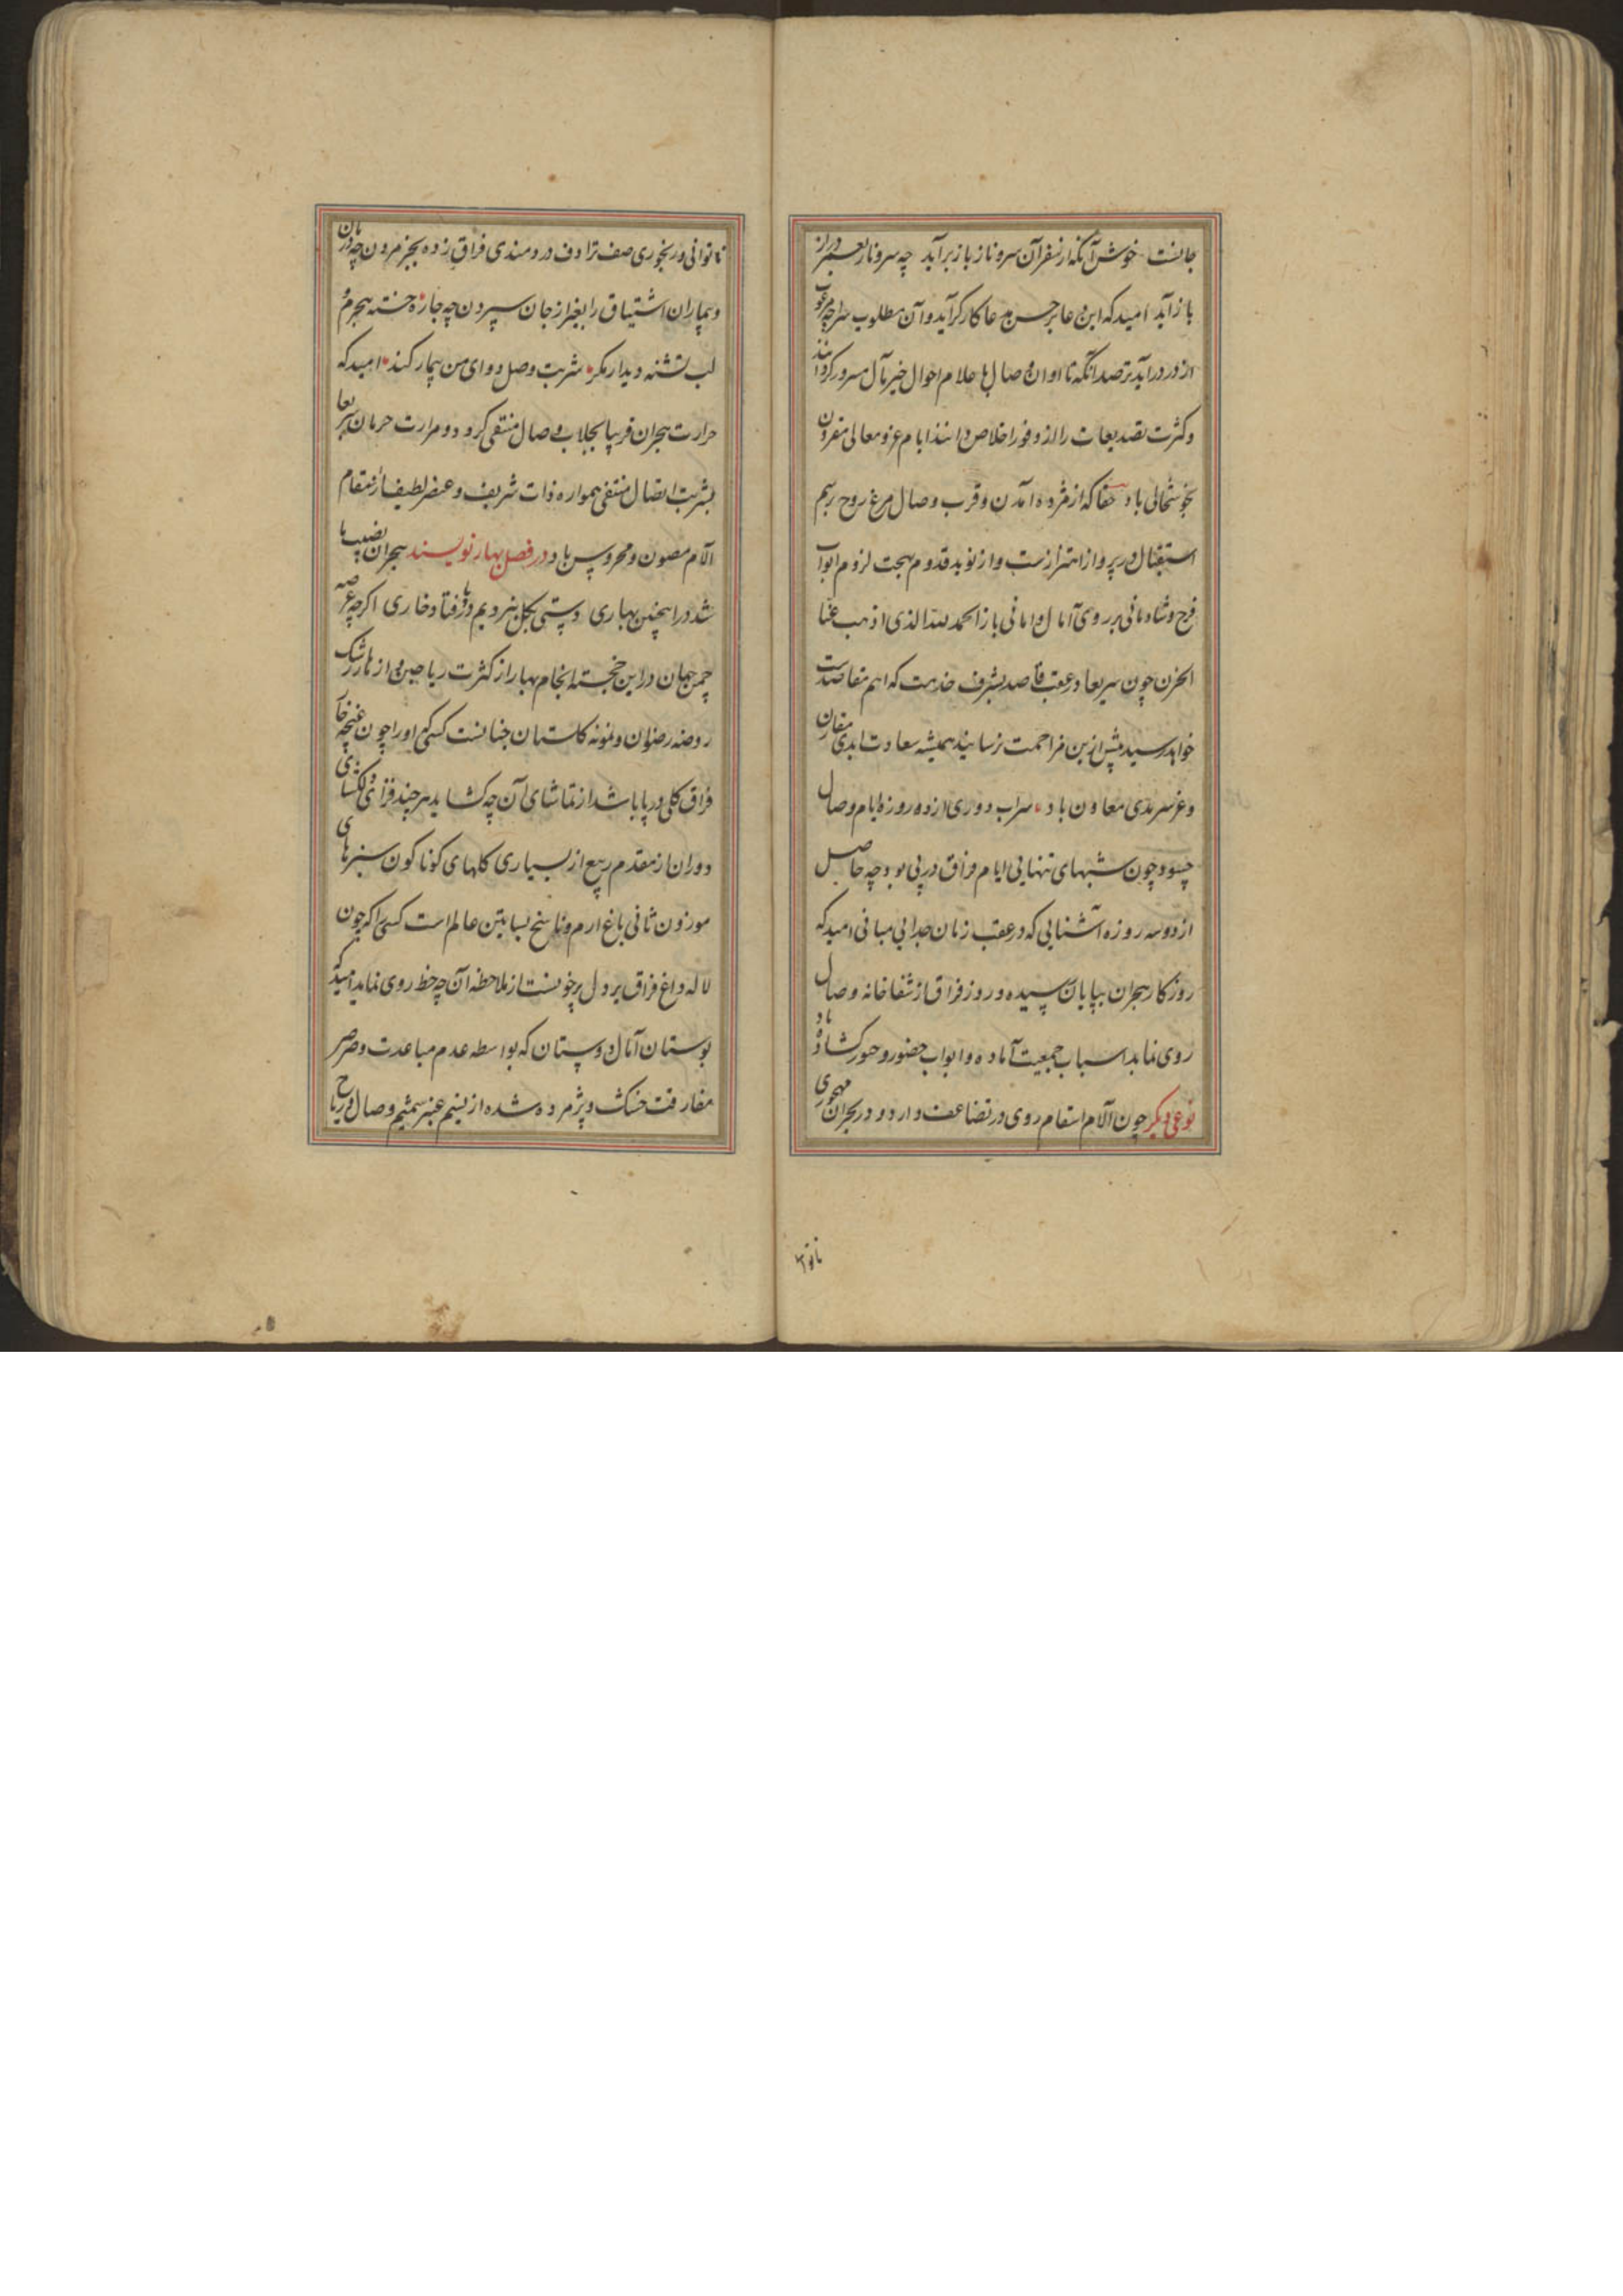 جانست خوش آنکه از سفر آن سرو ناز باز برآید چه سرو ناز بعمر دراز
باز آید امید که این دعا بر حسب مدعا کارگر آید و آن مطلوب مرغوب
از در درآید ترصد آنکه تا اوان وصال باعلام احوال خیر مآل مسرور گردانند
و کثرت تصدیعات را از وفور اخلاص دانند ایام عز و معالی مقرون
بخوشحالی باد حقا که از مژده آمدن و قرب وصال مرغ روح برسم
استقبال در پرواز اهتزازست و از نوید قدوم بهجت لزوم ابواب
فرح و شادمانی بر روی آمال و امانی باز الحمد لله الذی اذهب عنا
الحزن چون سریعا در عقب قاصد بشرف خدمت که اهم مقاصدست
خواهد رسید پیش ازین مزاحمت نرسانید همیشه سعادت ابدی مقارن
و عز سرمدی معاون باد سراب دوری از ده روزه ایام وصال
چسود چون شبهای تنهایی ایام فراق در پی بود و چه حاصل
از دو سه روزه آشنایی که در عقب زمان جدایی مبانی امید که
روزگار هجران بپایان رسیده و روز فراق از شفاخانه وصال
روی نماید اسباب جمعیت آماده و ابواب حضور و حبور گشاده باد
نوعی دیگر چون آلام اسقام روی در تضاعف دارد و در بحران مهجوری
ناتوا
ناتوانی و رنجوری صفت ترادف دردمندی فراق زده بجز مردن چه درمان
و بیماران اشتیاق را بغیر از جان سپردن چه چاره خسته هجرم و
لب تشنه دیدار مگر شربت وصل دوای من بیمار کند امید که
حرارت هجران قریبا بجلاب وصال منتفی گردد و مرارت حرمان سریعا
بشربت اتصال منتفی همواره ذات شریف و عنصر لطیف از سقام
آلام مصون و محروس باد در فصل بهار نویسند هجران نصیب ما
شد در اینچنین بهاری دستی بگل نبردیم در پا فتاد خاری اگرچه عرصه
چمن جهان در این خجسته انجام بهار از کثرت ریاحین و ازهار رشک
روضه رضوان و نمونه گلستان جنانست کسی را که او را چون غنچه خار
فراق گلی در پا باشد از تماشای آن چه گشاید هر چند فزای دلگشای
دوران از مقدم ربیع از بسیاری گلهای گوناگون سبزهای
موزون ثانی باغ ارم و ناسخ بساتین عالم است کسی را که چون
لاله داغ فراق بر دل پرخونست از ملاحظه آن چه حظ روی نماید امید که
بوستان آمال دوستان که بواسطه عدم مباعدت و صرصر
مفارقت خشک و پژمرده شده از نسیم عنبر شمیم وصال و ریاح